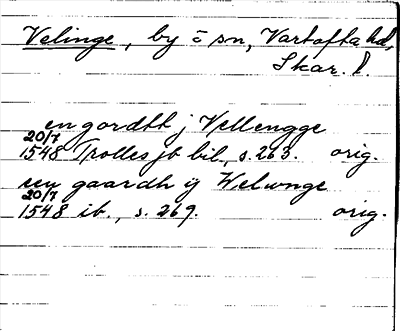 Velinge, by o sn, Vartofta hd,
Skar. l.
en gordtt j Vellengge
20/7
1548 Trolles jb bil., s. 263. orig.
een gaardh ij Welwnge
20/7
1548 ib., s. 269. orig.